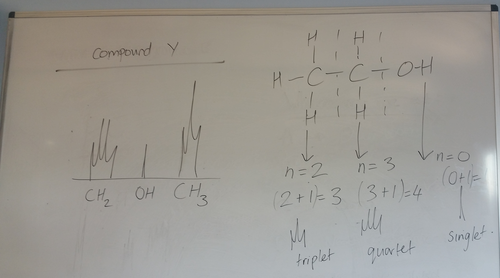 Compound Y
CH2 OH CH3
H H
H-C-C-O-H
H H
n=2 n=3 n=0
(2+1)=3 (3+1)=4 (0+1)=
triplet quartet singlet.